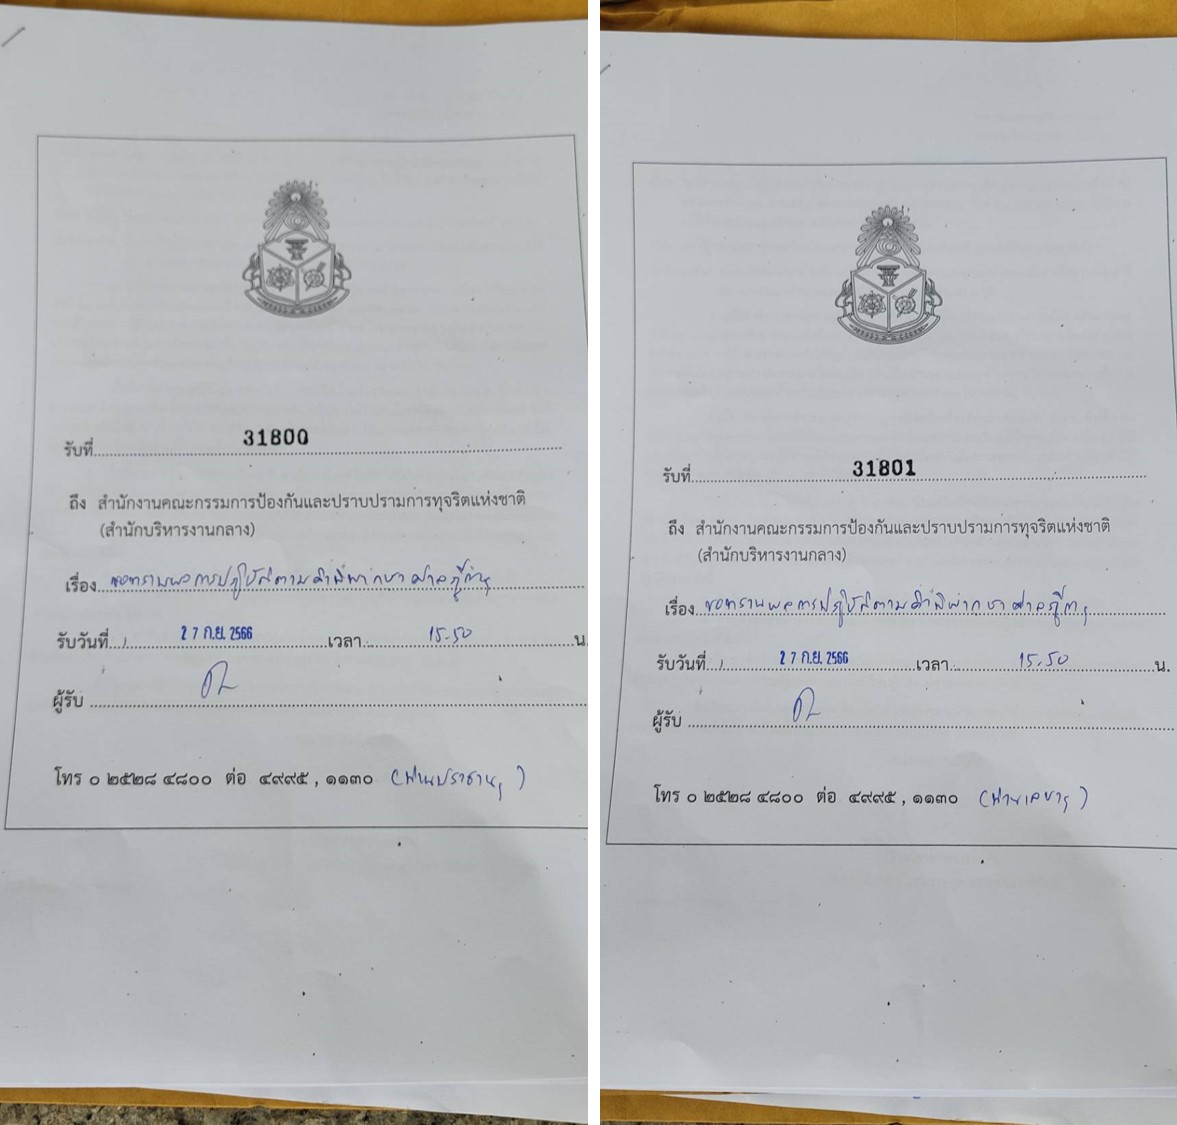 รับที่ 31800
ถึง สำนักงานคณะกรรมการป้องกันและปราบปรามการทุจริตแห่งชาติ
(สำนักบริหารงานกลาง)
เรื่อง ขอทราบผลการปฏิบัติตามคำพิพากษาศาลฎีกาฯ
รับวันที่ 27 ก.ย. 2566 เวลา 15.50 น
ผู้รับ
โทร ๐ ๒๕๒๘ ๔๘๐๐ ต่อ ๔๙๙๕ , ๑๑๓๐ (ผ่านประธานฯ)
รับที่ 31801
ถึง สำนักงานคณะกรรมการป้องกันและปราบปรามการทุจริตแห่งชาติ
(สำนักบริหารงานกลาง)
เรื่อง ขอทราบผลการปฏิบัติตามคำพิพากษาศาลฎีกาฯ
รับวันที่ 27 ก.ย. 2566 เวลา 15.50 น.
ผู้รับ
โทร ๐ ๒๕๒๘ ๔๘๐๐ ต่อ ๔๙๙๕ , ๑๑๓๐ (ผ่านเลขาฯ)